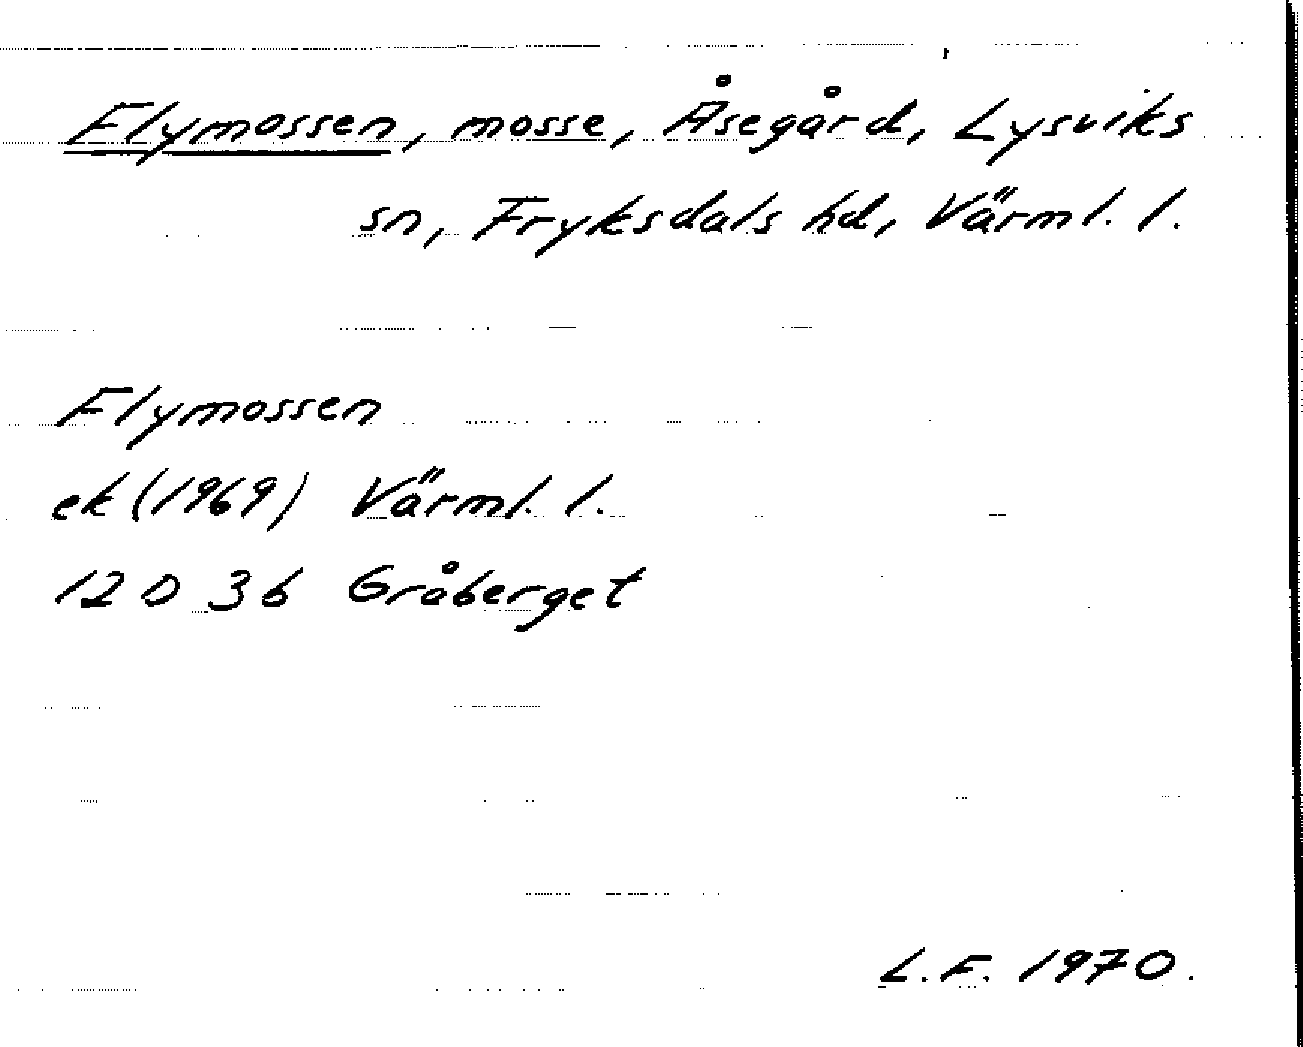 Flymossen, mosse, Åsegård, Lysviks
sn, Fryksdals hd, Värml. l.
Flymossen
ek (1969) Värml. l.
12 D 3b Gråberget
L.F. 1970.